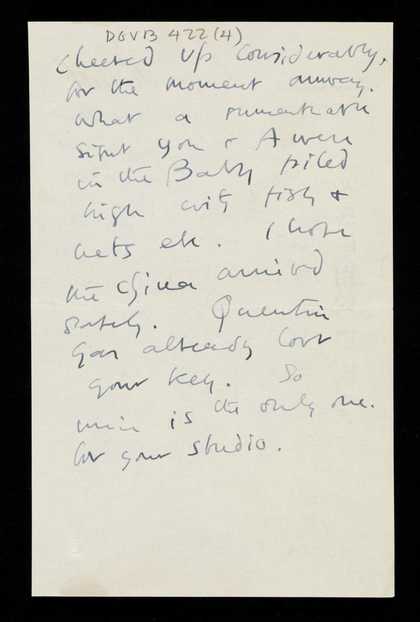 DGVB 422 (4)
cheered up considerably,
for the moment anyway.
What a remarkable
sight you & A were
in the Baby piled
high with fish &
nets etc. I hope
the china arrived
safely. Quentin
has already lost
your key. So
mine is the only one.
for your studio.